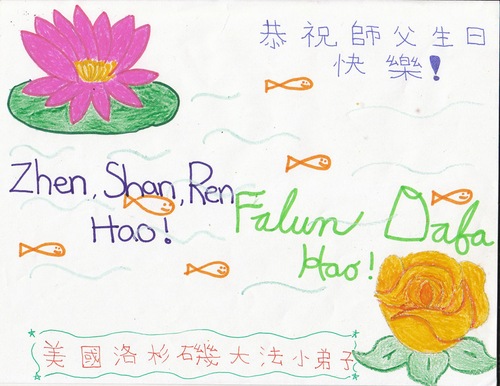 恭祝師父生日
快樂!
Zhen, Shan, Ren
Hao!
Falun Dafa
Hao!
美國洛杉磯大法小弟子